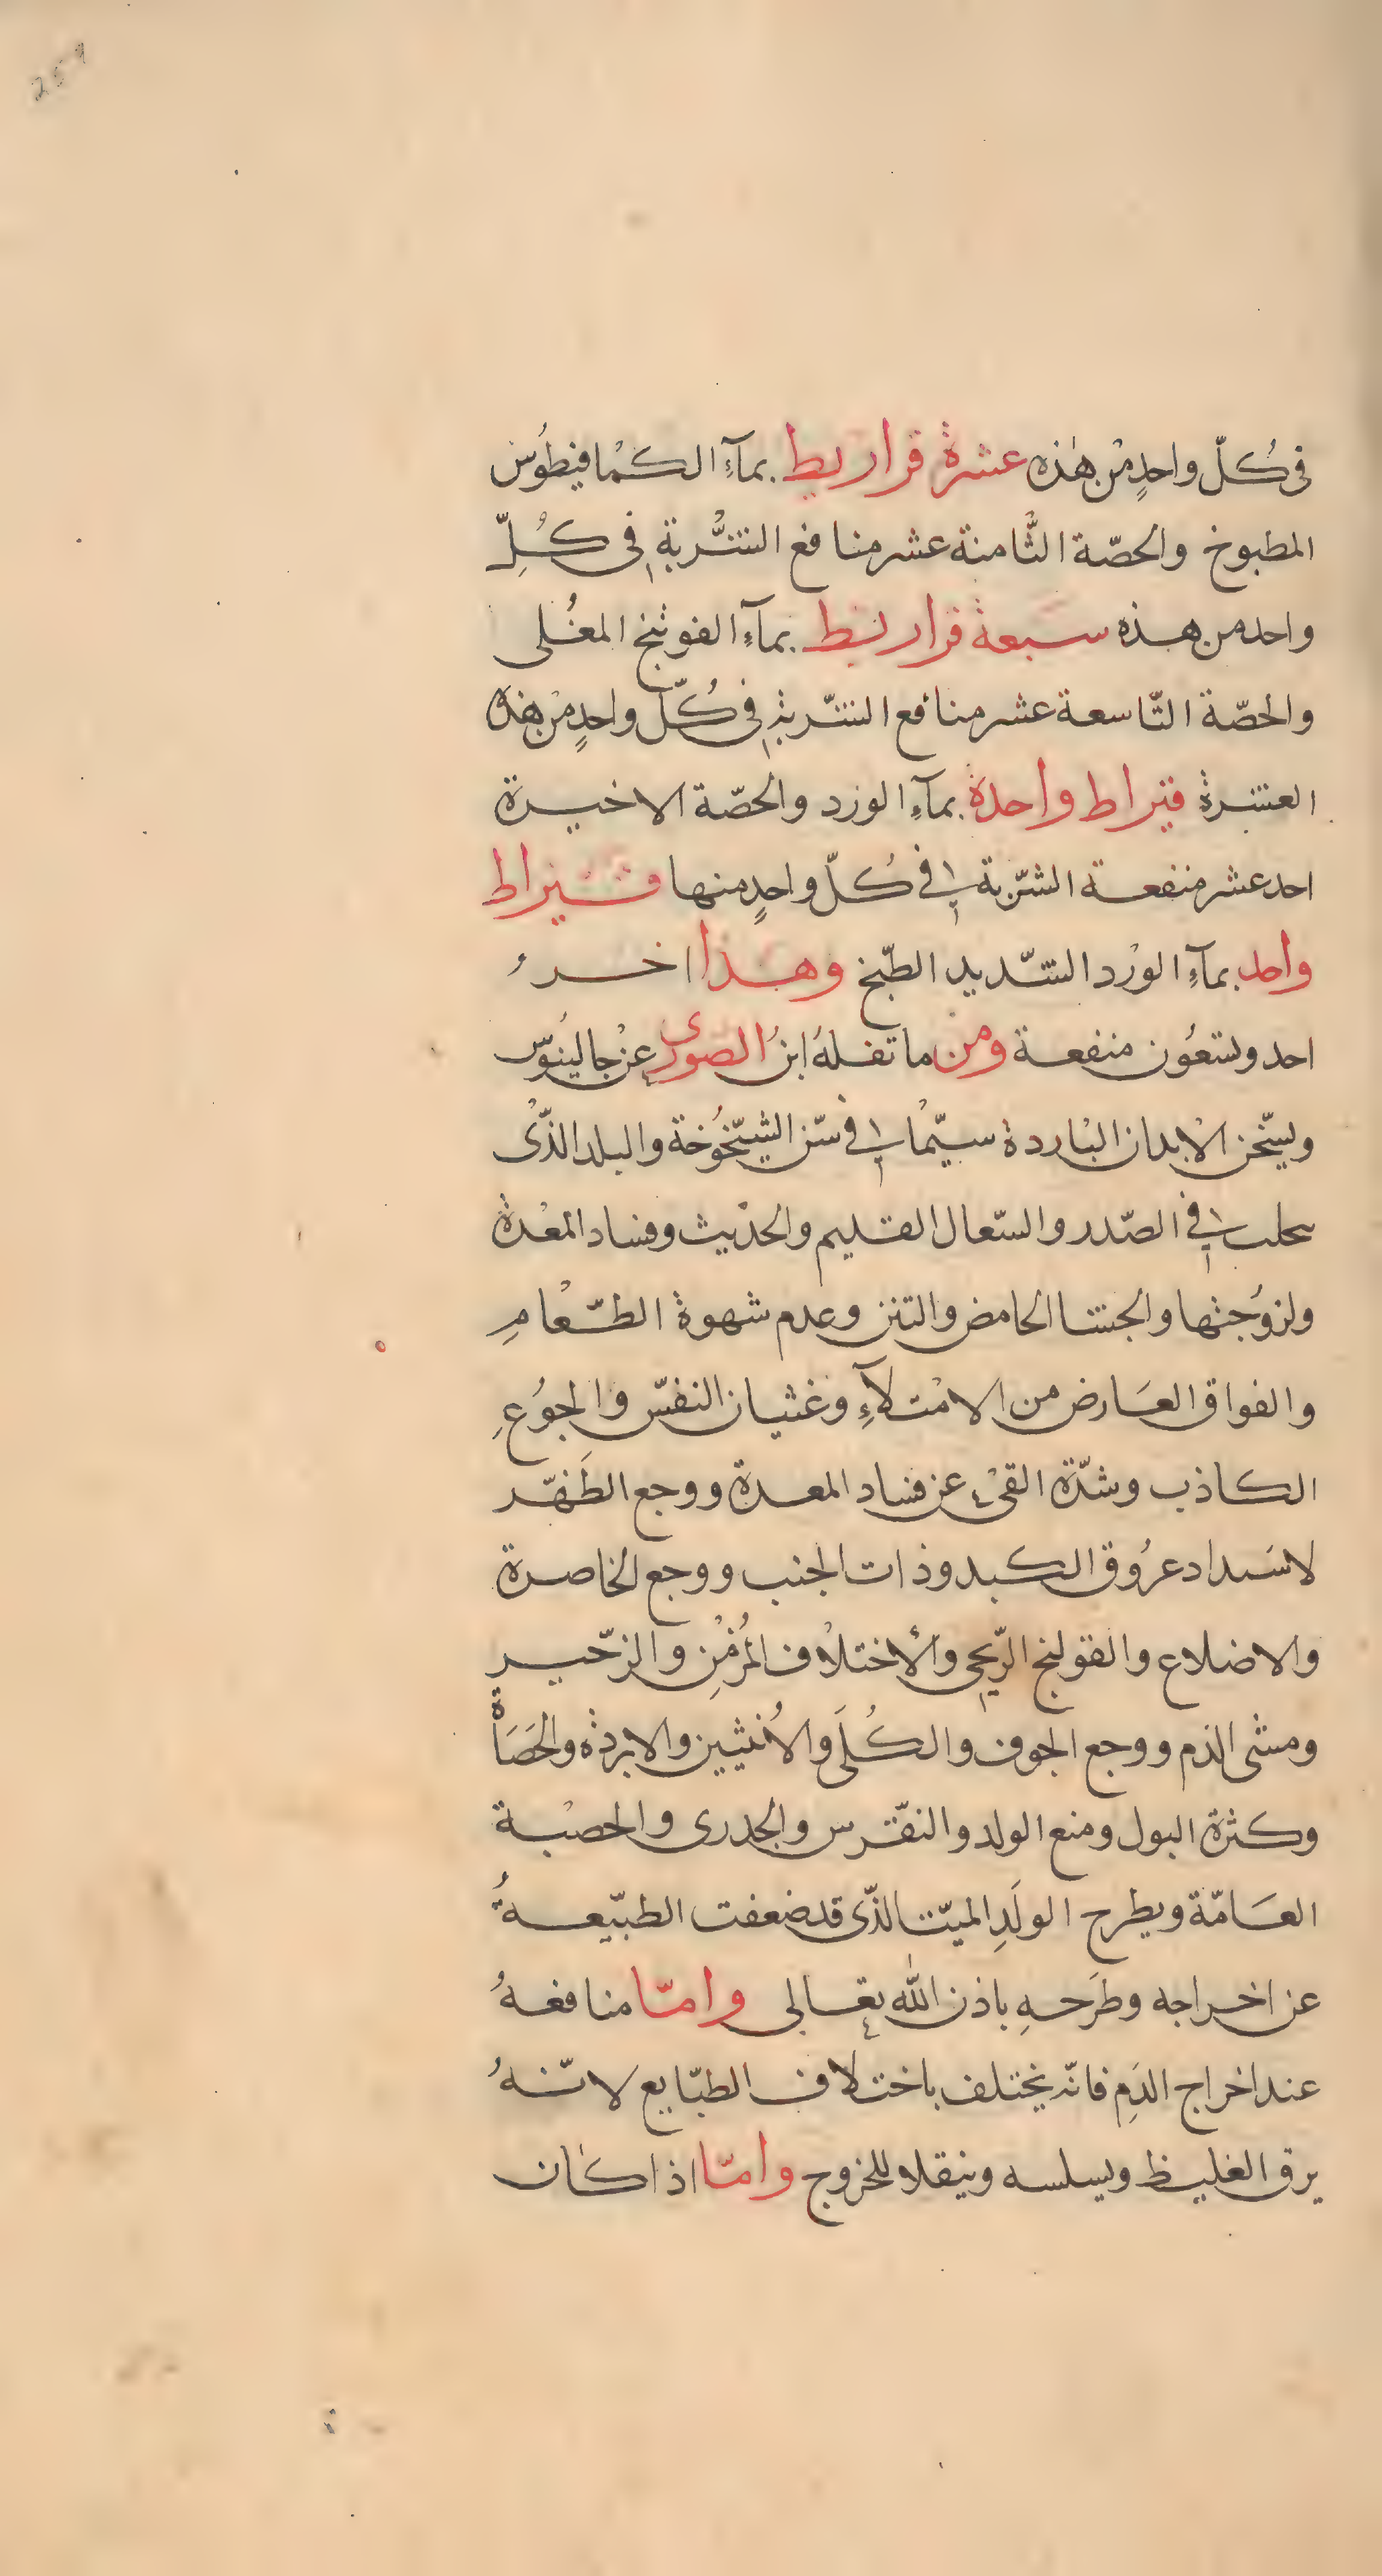 259
فى كُلّ واحدٍ منْ هٰذه عشرة قراريط بمآءِ الكمْافيطوُس
المطبوخ والحصّة الثّامنة عشر منافع الشّربة فى كُلِّ
واحد من هذه سبعة قراريط بمآءِ الفوتنج المغُلى
والحصّة التّاسعة عشر منافع الشّربة فى كُلّ واحدٍ منْ هٰذه
العشرة قيراط واحدة بمآءِ الورد والحصّة الاخيرة
احد عشر منفعة الشّربة فى كُلّ واحدٍ منها قيراط
واحد بمآءِ الوْرد الشّديد الطّبخ وهذا اخرُ
احد وتسعُون منفعة ومن ما نقلهُ ابنُ الصّورى عنْ جالينُوس
ويسّخن الْابدان البْاردة سيّمْا فى سّن الشّيخُوخة والبلد الذّى
تحلب فى الصّدر والسّعال القديم والحدْيث وفساد المعْدة
ولزوُجتْها والجشا الحامض والنتن وعدم شهوة الطّعْامِ
والفواق العَارض من الامْتلآءِ وغثيان النفسّ والجوُعِ
الكاذب وشدّة القىْء عن فساد المعدة ووجع الظَهّر
لاسَداد عرُوق الكبد وذات الجنب ووجع الخاصرة
والاضلاع والقولنج الرّيحى والْأختلْاف المُزْمِن والزّحير
ومشى الدم ووجع الجوف والكُلَى والاُنثيين والابردة والحَصَاْة
وكثرة البول ومنع الولد والنقّرس والجدرى والحصْبة
العَامّة ويطرح الولَدِ الميّت الذّى قد ضعفت الطبّيعةُ
عن اخراجه وطرَحهِ باذن اللّٰه تعالى وامّا منافعهُ
عند اخراج الدَمِ فانّه يختلف باختلاف الطبّايع لانّهُ
يرق الغليظ ويسلسه وينقلا للخروج وامّا اذا كان